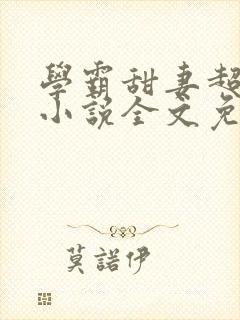 學霸甜妻超
小說全文免
莫諾伊